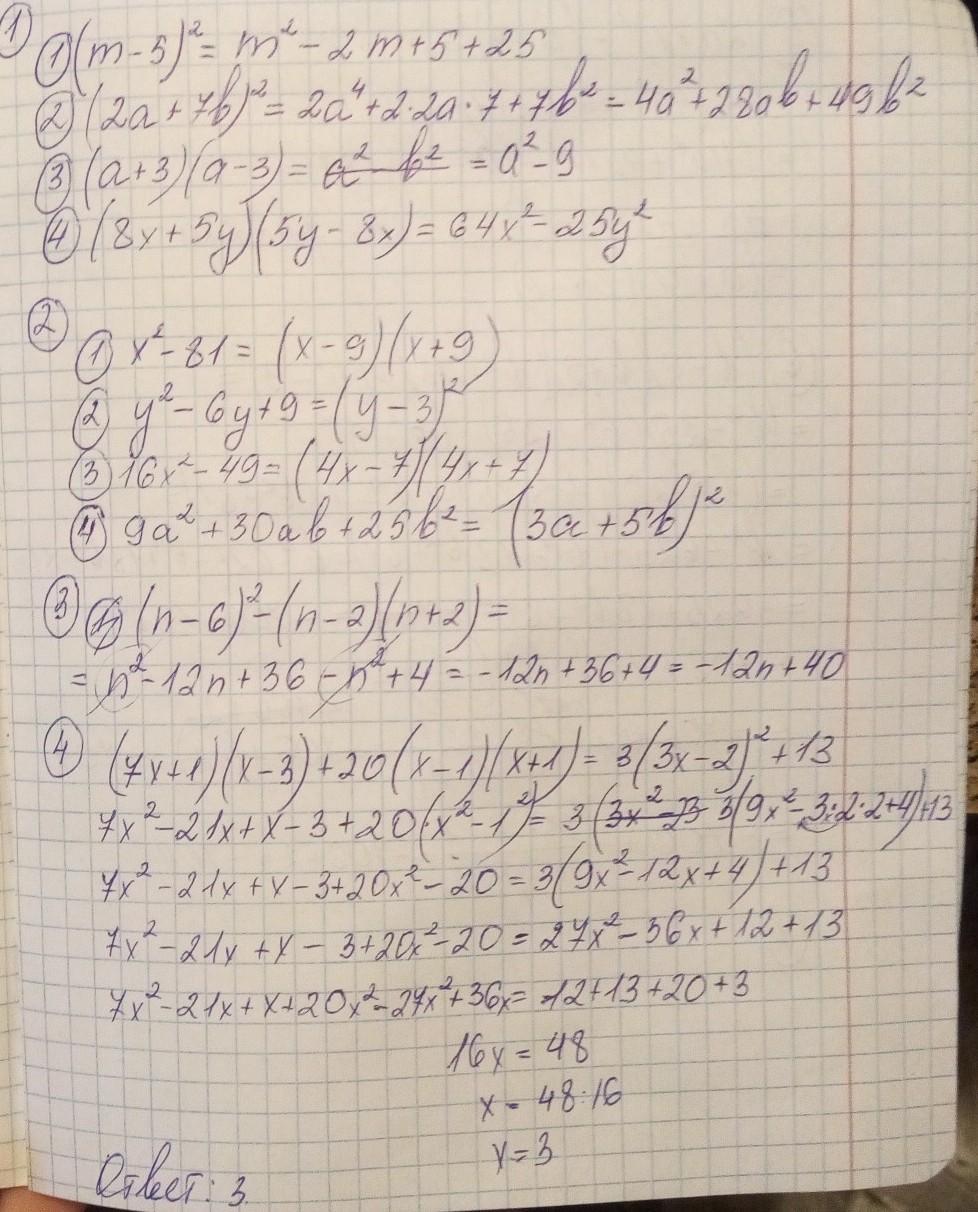 ① ① (m-5)² = m² - 2m+5+25
② (2a+7b)² = 2a⁴+2·2a·7+7b² = 4a²+28ab+49b²
③ (a+3)(a-3) = a² - b² = a²-9
④ (8x+5y)(5y-8x) = 64x²-25y²
②
① x²-81 = (x-9)(x+9)
② y²-6y+9 = (y-3)²
③ 16x²-49 = (4x-7)(4x+7)
④ 9a²+30ab+25b² = (3a+5b)²
③ (n-6)²-(n-2)(n+2) =
= n²-12n+36-n²+4 = -12n+36+4 = -12n+40
④ (7x+1)(x-3)+20(x-1)(x+1) = 3(3x-2)²+13
7x²-21x+x-3+20(x²-1²) = 3(3x²-23 3(9x²-3·2·2+4)+13
7x²-21x+x-3+20x²-20 = 3(9x²-12x+4)+13
7x²-21x+x-3+20x²-20 = 27x²-36x+12+13
7x²-21x+x+20x²-27x²+36x = 12+13+20+3
16x = 48
x = 48:16
x = 3
Ответ: 3.